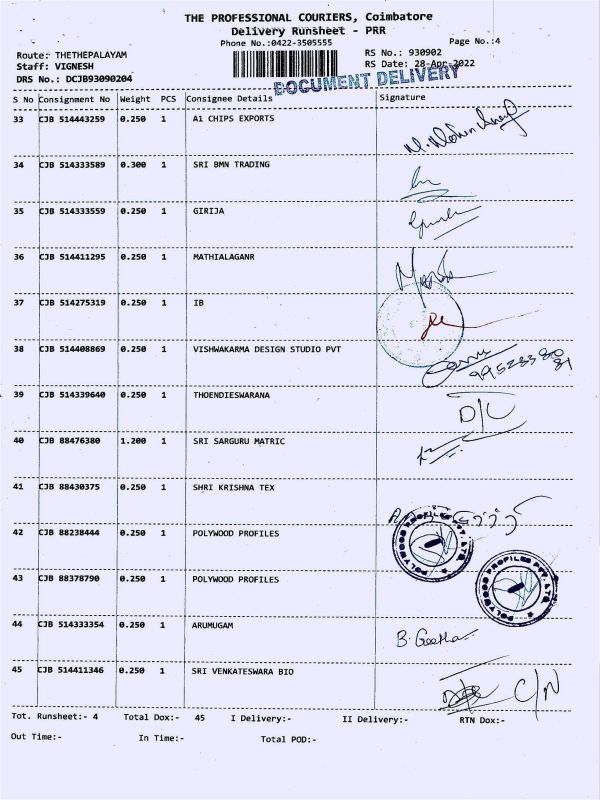 THE PROFESSIONAL COURIERS, Coimbatore
Delivery Runsheet - PRR
Phone No.:0422-3505555
Page No.:4
Route: THETHEPALAYAM
RS No.: 930902
Staff: VIGNESH
RS Date: 28-Apr-2022
DRS No.: DCJB93090204
DOCUMENT DELIVERY
S No Consignment No Weight PCS Consignee Details Signature
33 CJB 514443259 0.250 1 A1 CHIPS EXPORTS
34 CJB 514333589 0.300 1 SRI BMN TRADING
35 CJB 514333559 0.250 1 GIRIJA
36 CJB 514411295 0.250 1 MATHIALAGANR
37 CJB 514275319 0.250 1 IB
38 CJB 514408869 0.250 1 VISHWAKARMA DESIGN STUDIO PVT
39 CJB 514339640 0.250 1 THOENDIESWARANA
D/L
40 CJB 88476380 1.200 1 SRI SARGURU MATRIC
41 CJB 88430375 0.250 1 SHRI KRISHNA TEX
42 CJB 88238444 0.250 1 POLYWOOD PROFILES
POLYWOOD PROFILES PVT. LTD.
43 CJB 88378790 0.250 1 POLYWOOD PROFILES
POLYWOOD PROFILES PVT. LTD.
44 CJB 514333354 0.250 1 ARUMUGAM
B. Geetha
45 CJB 514411346 0.250 1 SRI VENKATESWARA BIO
C/N
Tot. Runsheet:- 4 Total Dox:- 45 I Delivery:- II Delivery:- RTN Dox:-
Out Time:- In Time:- Total POD:-